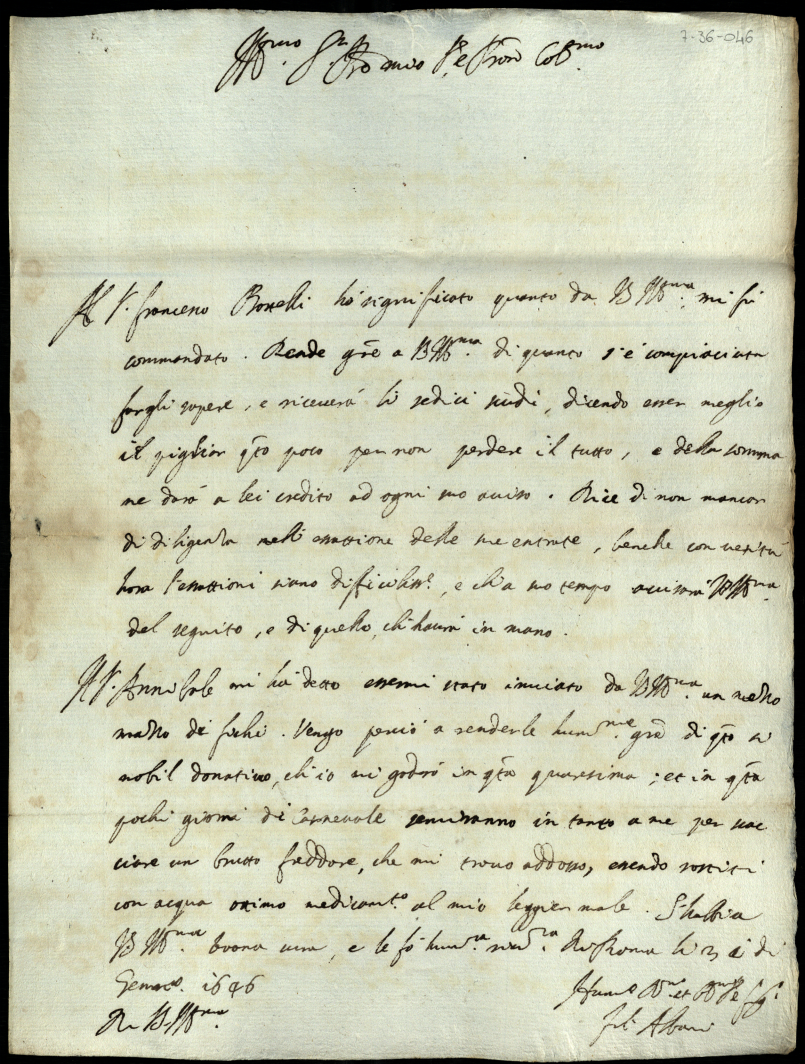 7-36-046
Ill.mo S.r Pro mio e Pron Col.mo
Al S.r Francesco Borelli hò significato quanto da V.S. Ill.ma mi fù
commandato. Rende grẽ a V.S. Ill.ma di quanto s'è compiaciuta
fargli sapere, e riceverà li sedici scudi, dicendo esser meglio
il pigliar q̃to poco per non perdere il tutto, e della somma
ne darà a lei credito ad ogni suo aviso. Dice di non mancar
di diligenza nell'essattione delle sue entrate, benche con verità
hora l'essattioni siano difficiliss.e, e ch'a suo tempo avisarà V.S. Ill.ma
del seguito, e di quello, ch'havrà in mano.
Il S.r Annibale mi hà detto essermi stato inviato da V.S. Ill.ma un mezzo
mazzo di fichi. Vengo perciò a renderle hum.me grẽ di q̃to sì
nobil donativo, ch'io mi goderò in q̃ta quaresima; et in q̃ti
pochi giorni di Carnevale serviranno in tanto a me per scac
ciare un brutto freddore, che mi trovo addosso, essendo rostiti
con acqua ottimo medicam.to al mio leggier male. S'habbia
V.S. Ill.ma buona cura, e le fò hum.a riv.a Di Roma li 31 di
Genn.o 1646
Di V.S. Ill.ma
Hum.o et
Albani